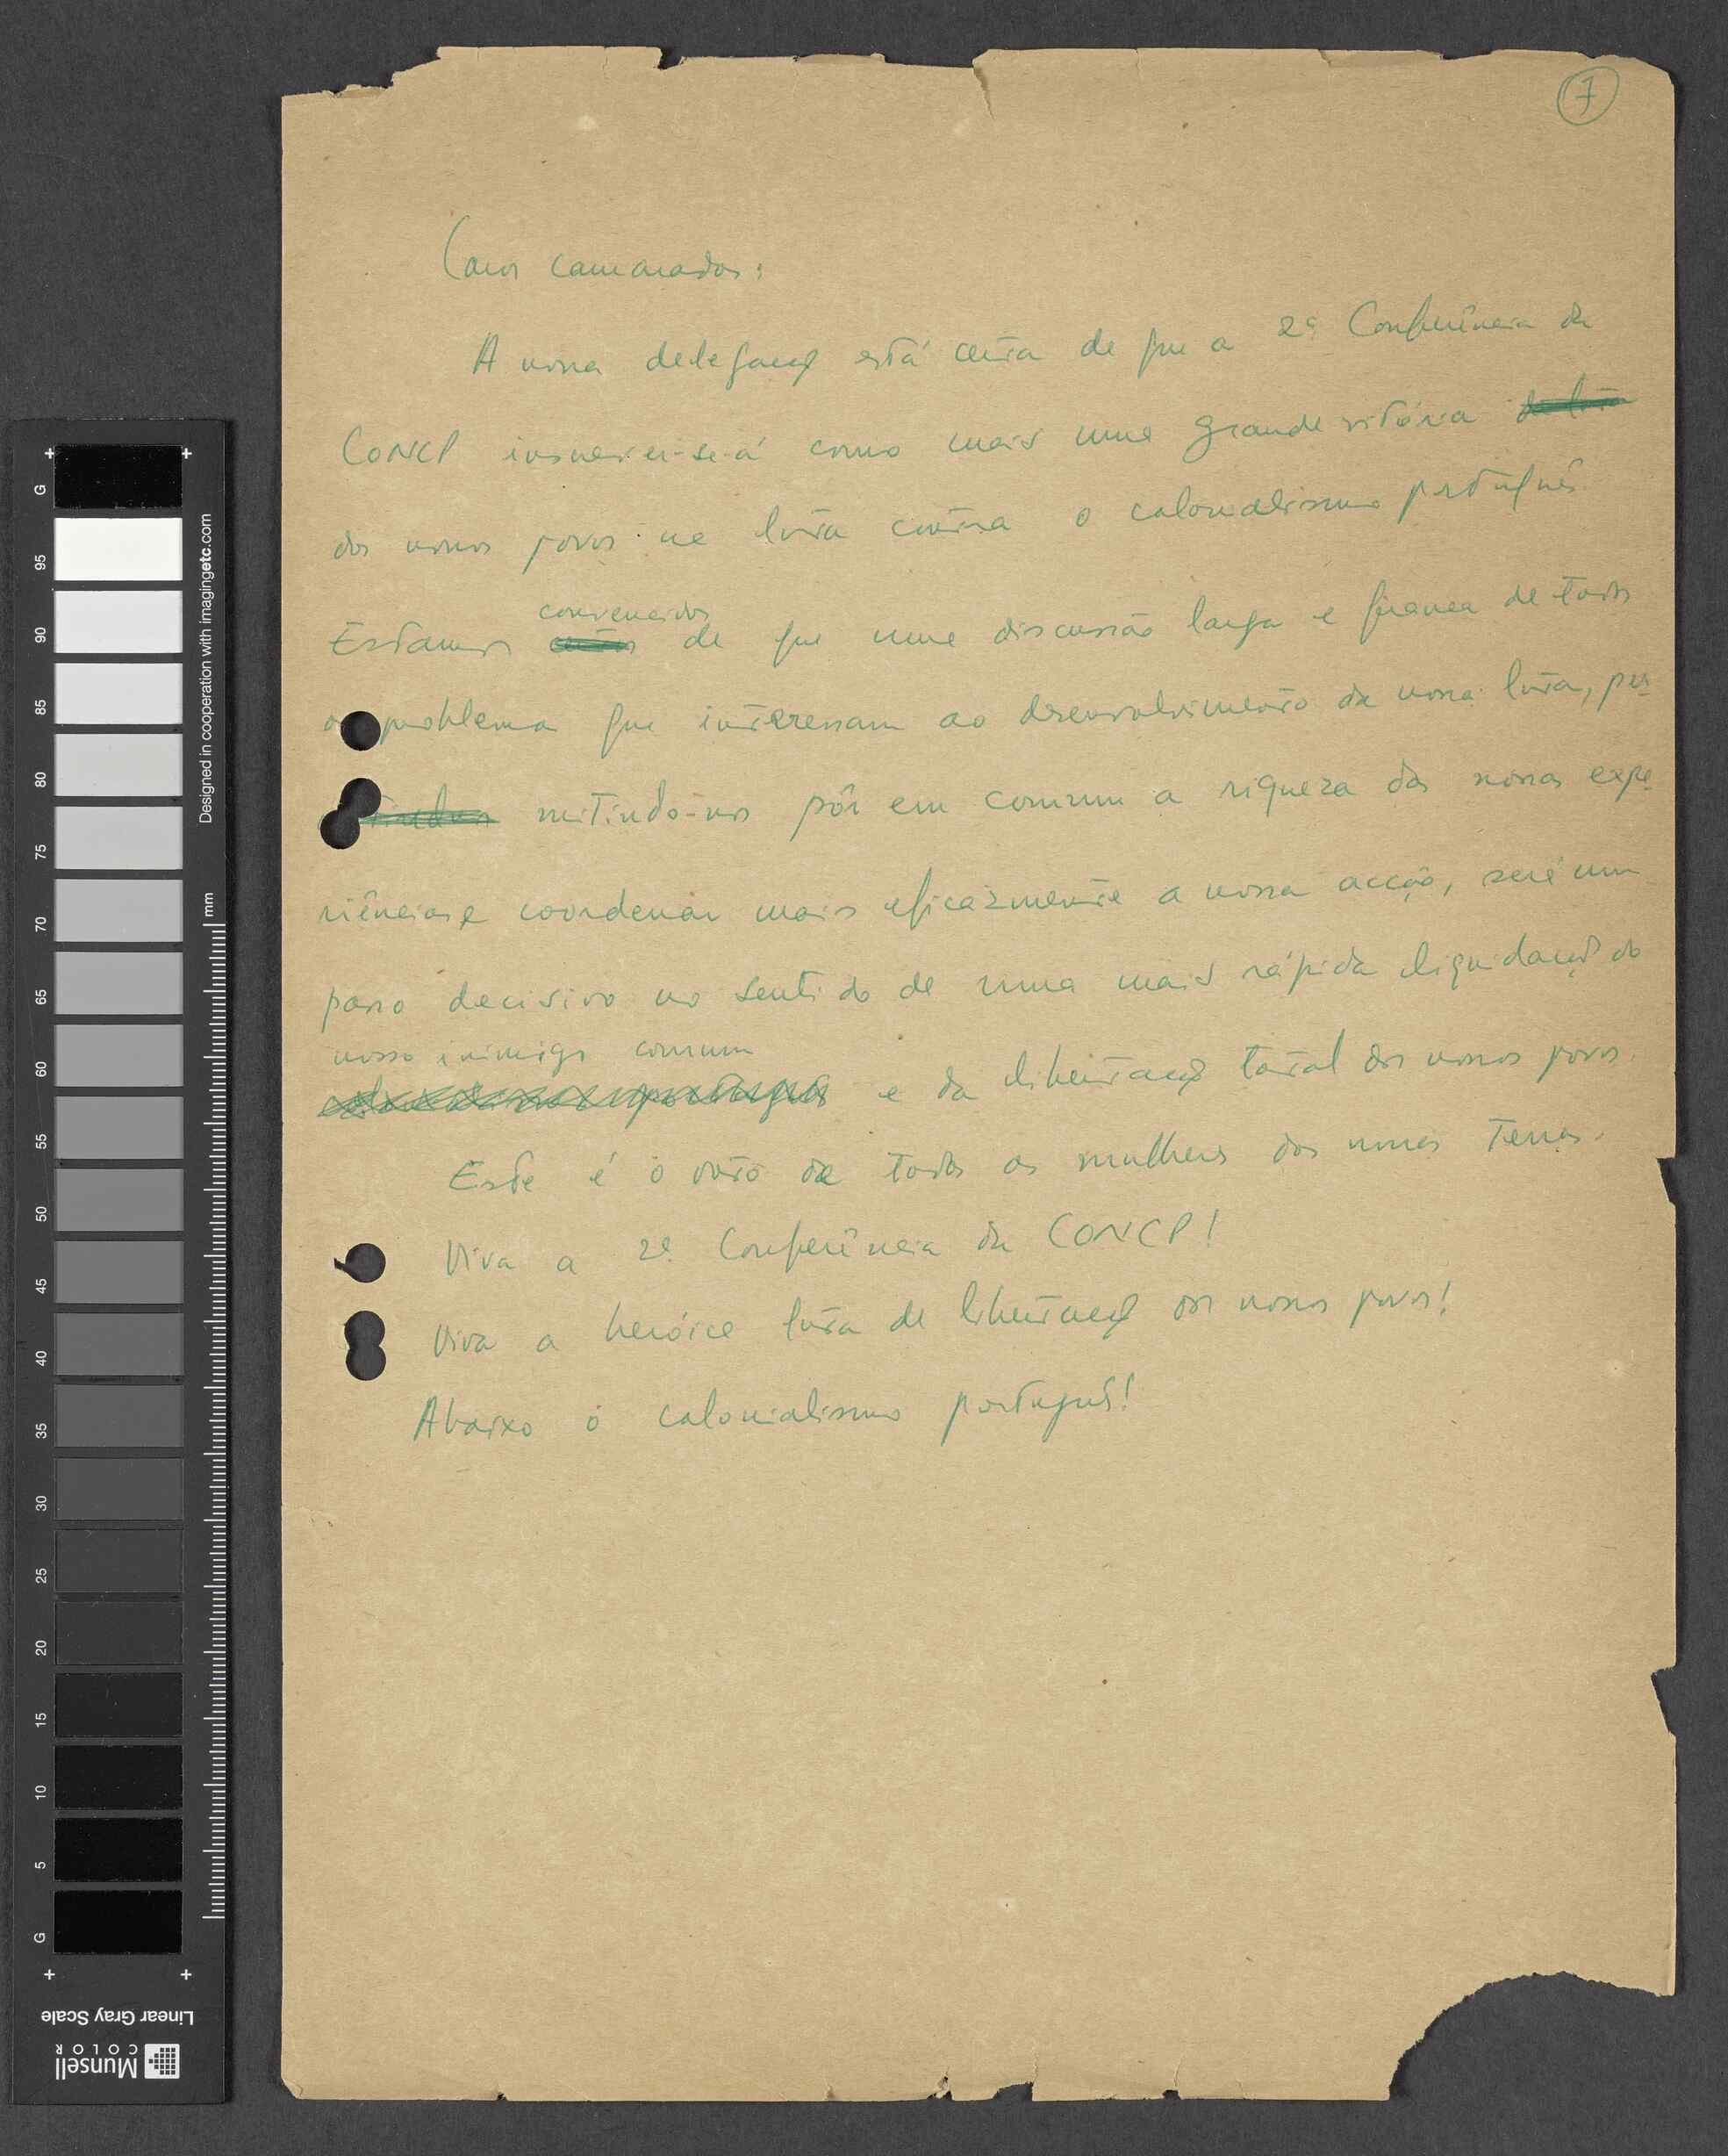 7
Caros camaradas:
A nossa delegação está certa de que a 2ª Conferência da
CONCP inscrever-se-á como mais uma grande vitória da luta
dos nossos povos na luta contra o colonialismo português.
convencidos
Estamos certos de que uma discussão larga e franca de todos
os problemas que interessam ao desenvolvimento da nossa luta, per-
mitindo-nos pôr em comum a riqueza das nossas expe-
riências e coordenar mais eficazmente a nossa acção, será um
passo decisivo no sentido de uma mais rápida liquidação do
nosso inimigo comum
colonialismo português e da libertação total dos nossos povos.
Este é o voto de todas as mulheres das nossas terras.
Viva a 2ª Conferência da CONCP!
Viva a heróica luta de libertação dos nossos povos!
Abaixo o colonialismo português!
G 95 90 85 80 75 70 65 60 55 50 45 40 35 30 25 20 15 10 5 G
mm
Designed in cooperation with imagingetc.com
Linear Gray Scale
Munsell
COLOR